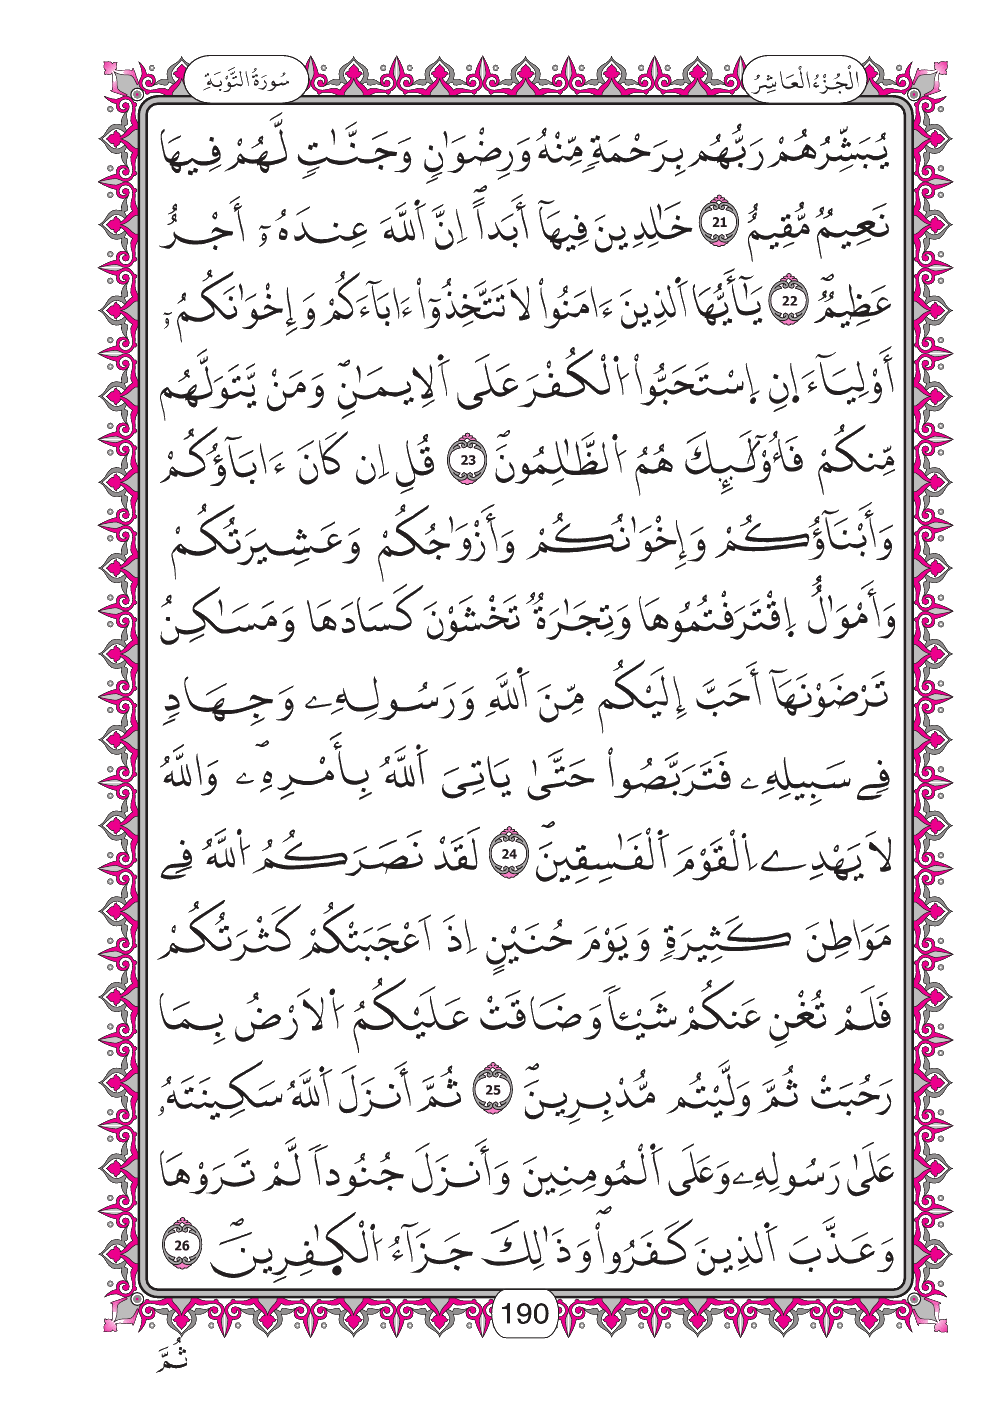 الْجُزْءُ الْعَاشِرُ
سُورَةُ التَّوْبَةِ
يُبَشِّرُهُمْ رَبُّهُم بِرَحْمَةٖ مِّنْهُ وَرِضْوَٰنٖ وَجَنَّٰتٖ لَّهُمْ فِيهَا
نَعِيمٞ مُّقِيمٌ 21 خَٰلِدِينَ فِيهَآ أَبَداًۖ اِنَّ اَ۬للَّهَ عِندَهُۥٓ أَجْرٌ
عَظِيمٞۖ 22 يَٰٓأَيُّهَا اَ۬لذِينَ ءَامَنُواْ لَا تَتَّخِذُوٓاْ ءَابَآءَكُمْ وَإِخْوَٰنَكُمُۥٓ
أَوْلِيَآءَ اِنِ اِ۪سْتَحَبُّواْ اُ۬لْكُفْرَ عَلَى اَ۬لِايمَٰنِۖ وَمَنْ يَّتَوَلَّهُم
مِّنكُمْ فَأُوْلَٰٓئِكَ هُمُ اُ۬لظَّٰلِمُونَۖ 23 قُلِ اِن كَانَ ءَابَآؤُكُمْ
وَأَبْنَآؤُكُمْ وَإِخْوَٰنُكُمْ وَأَزْوَٰجُكُمْ وَعَشِيرَتُكُمْ
وَأَمْوَٰلٌ اِ۪قْتَرَفْتُمُوهَا وَتِجَٰرَةٞ تَخْشَوْنَ كَسَادَهَا وَمَسَٰكِنُ
تَرْضَوْنَهَآ أَحَبَّ إِلَيْكُم مِّنَ اَ۬للَّهِ وَرَسُولِهِۦ وَجِهَادٖ
فِے سَبِيلِهِۦ فَتَرَبَّصُواْ حَتَّىٰ يَاتِيَ اَ۬للَّهُ بِأَمْرِهِۦۖ وَاللَّهُ
لَا يَهْدِے اِ۬لْقَوْمَ اَ۬لْفَٰسِقِينَۖ 24 لَقَدْ نَصَرَكُمُ اُ۬للَّهُ فِے
مَوَاطِنَ كَثِيرَةٖ وَيَوْمَ حُنَيْنٍ اِذَ اَعْجَبَتْكُمْ كَثْرَتُكُمْ
فَلَمْ تُغْنِ عَنكُمْ شَيْـٔاٗ وَضَاقَتْ عَلَيْكُمُ اُ۬لَارْضُ بِمَا
رَحُبَتْ ثُمَّ وَلَّيْتُم مُّدْبِرِينَۖ 25 ثُمَّ أَنزَلَ اَ۬للَّهُ سَكِينَتَهُۥ
عَلَىٰ رَسُولِهِۦ وَعَلَى اَ۬لْمُومِنِينَ وَأَنزَلَ جُنُوداٗ لَّمْ تَرَوْهَا
وَعَذَّبَ اَ۬لذِينَ كَفَرُواْۖ وَذَٰلِكَ جَزَآءُ اُ۬لْكٰ۪فِرِينَۖ 26
190
ثُمَّ